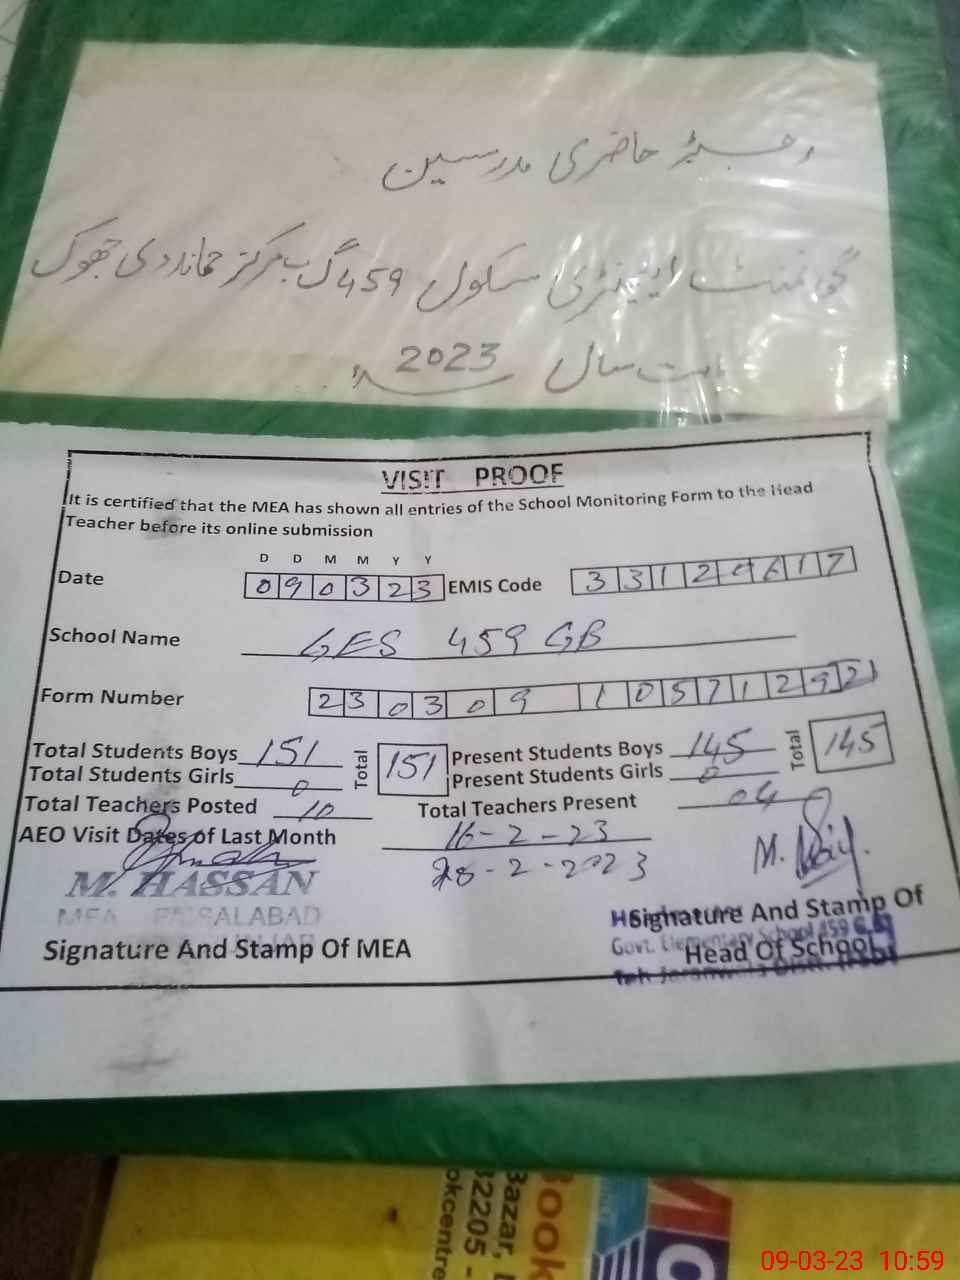 رجسٹر حاضری مدرسین
گورنمنٹ ایلیمنٹری سکول 459 گ ب مرکز جھوک
بابت سال 2023ء
VISIT PROOF
It is certified that the MEA has shown all entries of the School Monitoring Form to the Head
Teacher before its online submission
D D M M Y Y
Date 090323 EMIS Code 33120617
School Name GES 459 GB
Form Number 230309 10571292
Total Students Boys 151 Total 151 Present Students Boys 145 Total 145
Total Students Girls 0 Present Students Girls 0
Total Teachers Posted 10 Total Teachers Present 04
AEO Visit Dates of Last Month 16-2-23
28-2-2023
M. HASSAN
MEA FAISALABAD
Signature And Stamp Of MEA
Signature And Stamp Of
Govt. Elementary School 459 G.B
Head Of School
Book
Bazar,
32205 -
okcentre
09-03-23 10:59